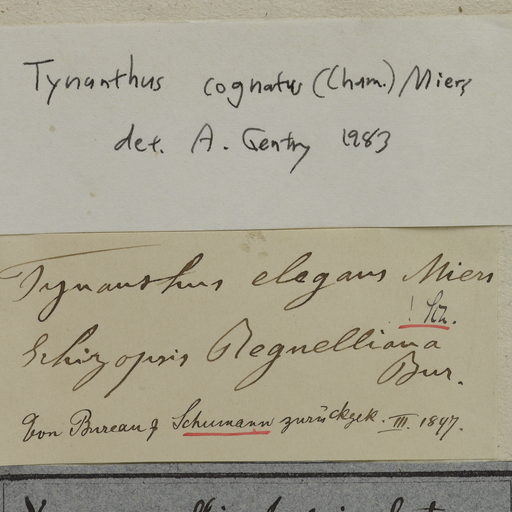 Tynanthus cognatus (Cham.) Miers
det. A. Gentry 1983
Tynanthus elegans Miers
! Sch.
Schizopsis Regnelliana
Bur.
Von Bureau & Schumann zurückgek. III. 1897.